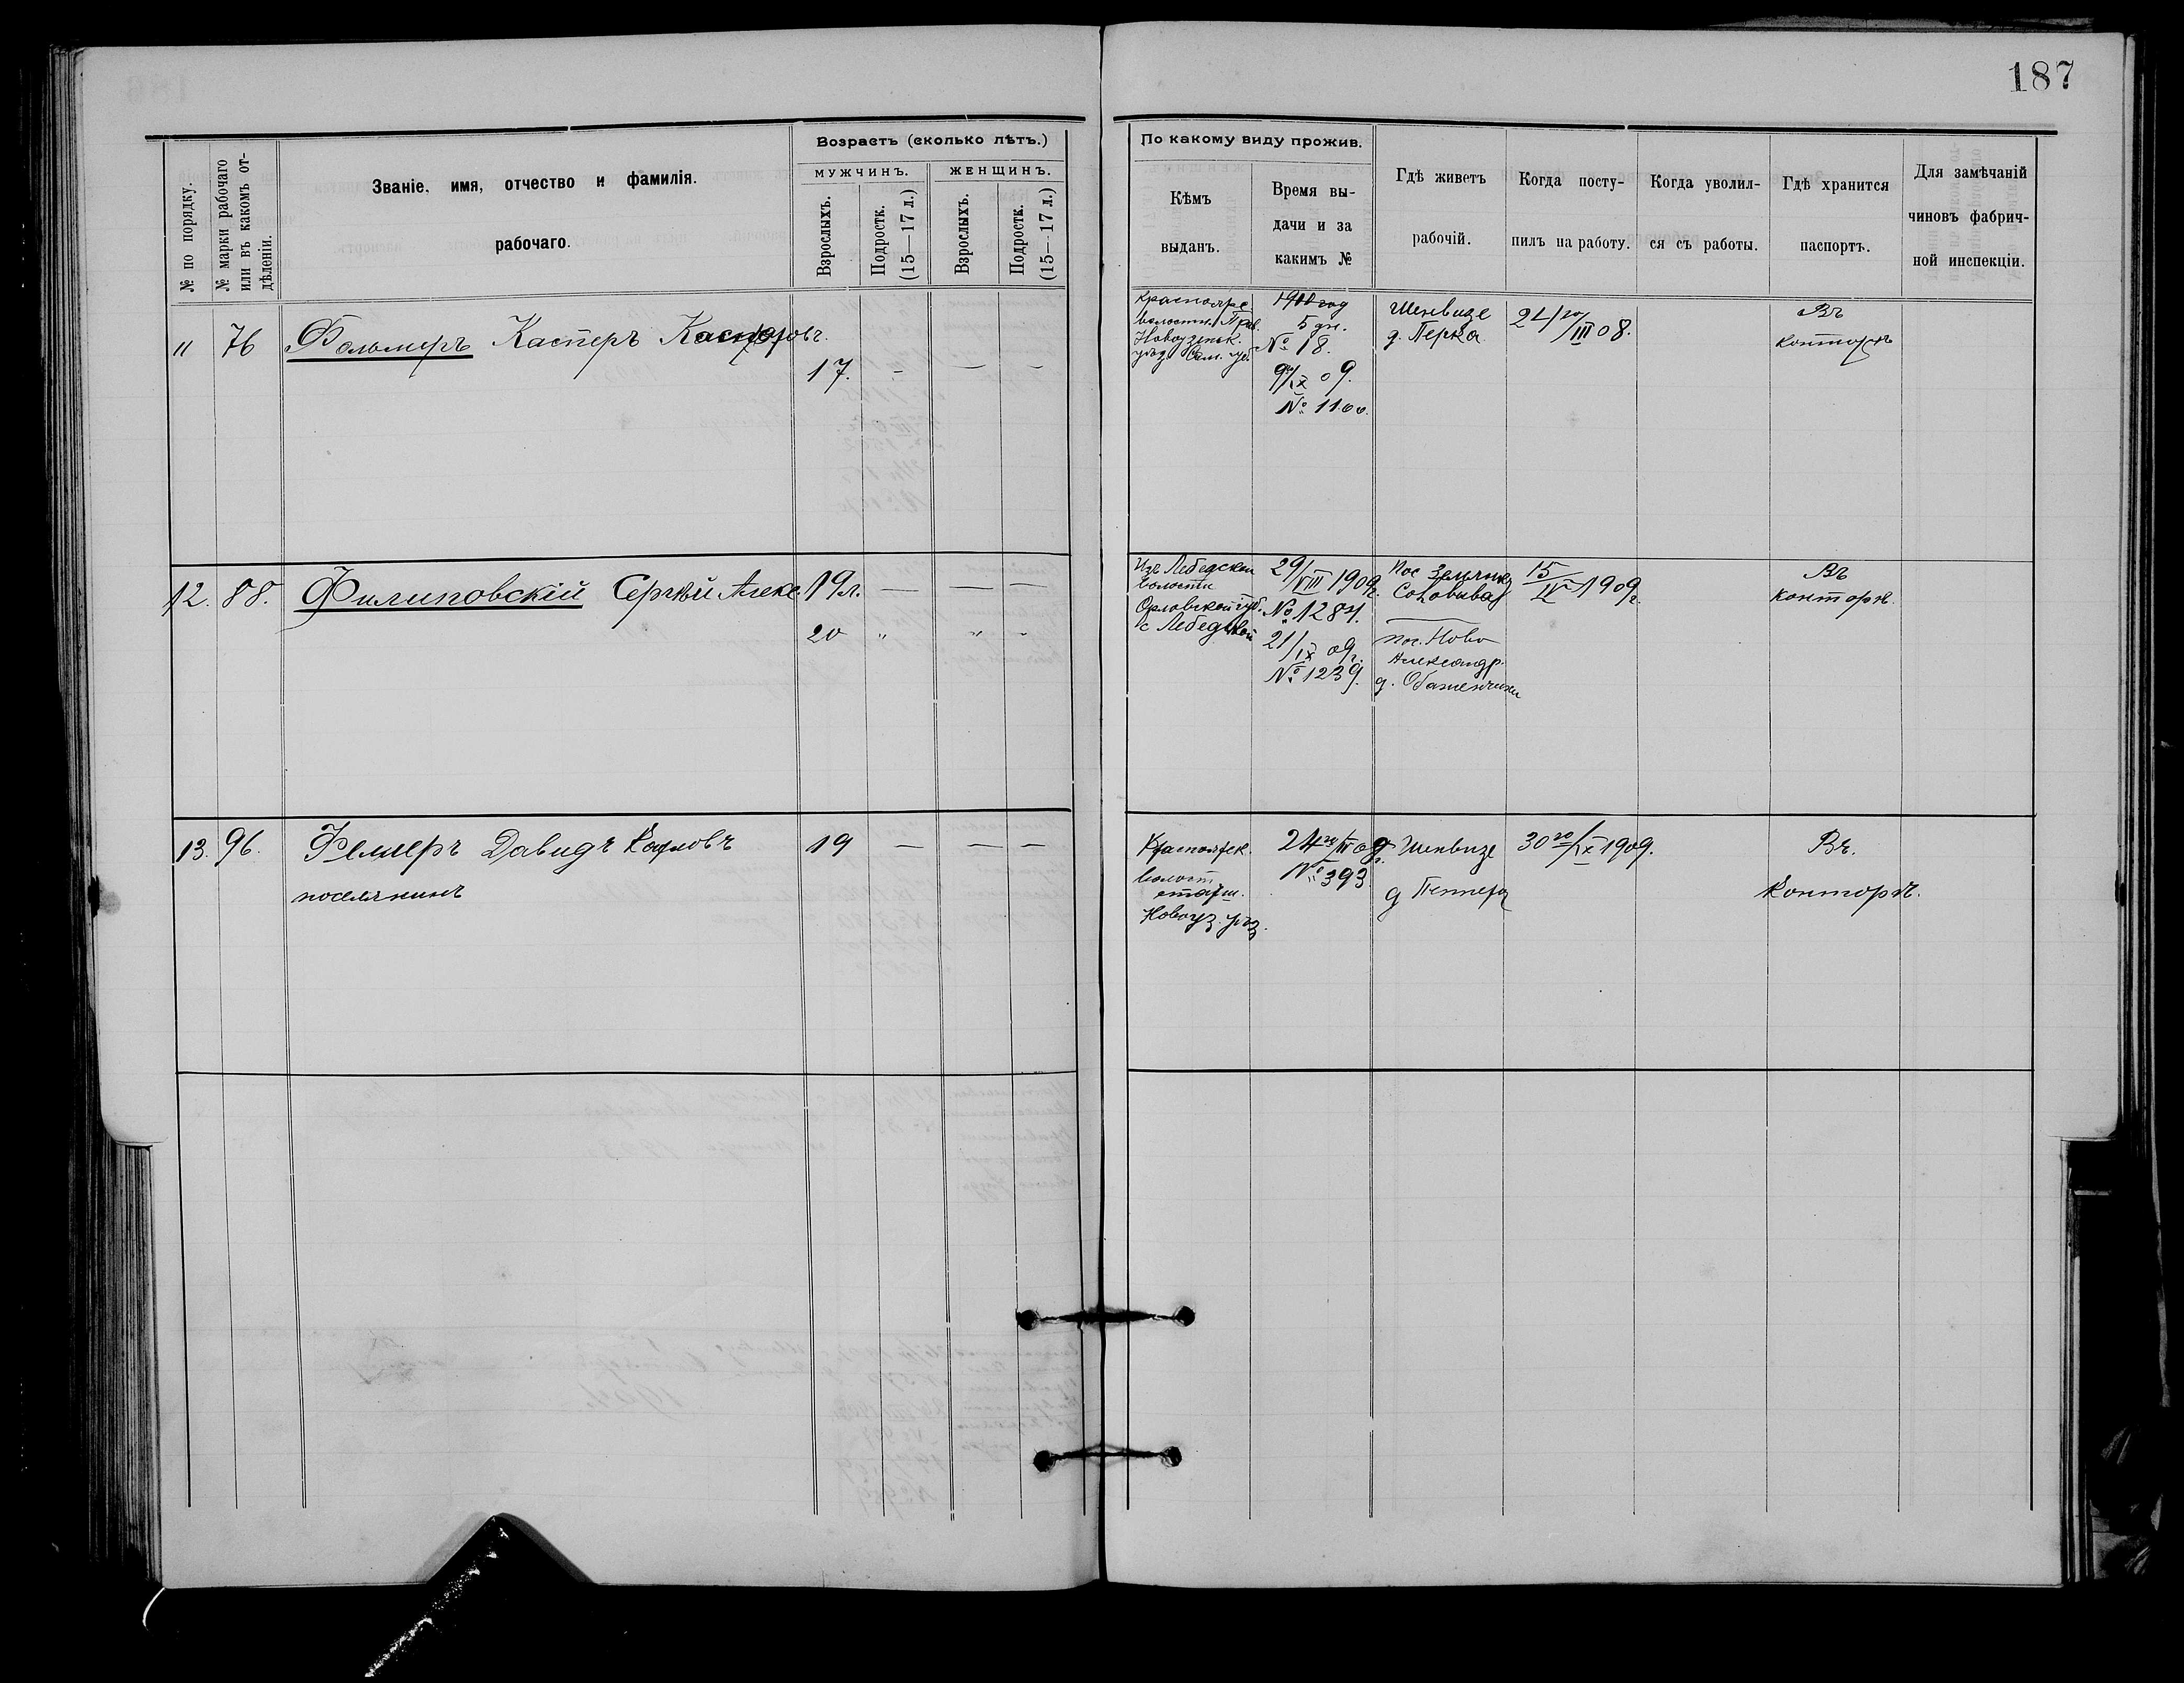 187
№ по порядку.
№ марки рабочаго или въ какомъ отдѣленіи.
Званіе, имя, отчество и фамилія.
рабочаго.
Возрастъ (сколько лѣтъ.)
МУЖЧИНЪ.
ЖЕНЩИНЪ.
Взрослыхъ.
Подростк. (15—17 л.)
Взрослыхъ.
Подростк. (15—17 л.)
По какому виду прожив.
Кѣмъ
выданъ.
Время вы-
дачи и за
какимъ №
Гдѣ живетъ
рабочій.
Когда посту-
пилъ на работу.
Когда уволил-
ся съ работы.
Гдѣ хранится
паспортъ.
Для замѣчаній
чиновъ фабрич-
ной инспекціи.
11 76 Фольмеръ Касперъ Каспаровъ.
17. — — —
Краснояр
волостн. Прав.
Новоузенск.
уѣзд Сам. губ.
5 дн.
№ 18.
IX 09.
№ 1100.
Шенвизе
д. Перка
III 08.
Въ
конторѣ
12. 88. Филиповскій Сергѣй Алекс. 19 л. — — —
20 " " "
Изъ Лебедской
волости
Орловской губ.
с Лебедской
29/VIII 1909г.
№ 1284.
21/IX 09г.
№ 1239.
пос.
пос. Ново
Александр.
д.
15/IV 1909г.
Въ
конторѣ.
13. 96. Фелмеръ Давидъ Карловъ 19 — — —
поселянинъ
Красноярск.
волост
старш.
Новоуз. уѣз.
24го/III 09г.
№ 393
Шенвизе
д Геппера
30го/IX 1909.
Въ.
Конторѣ.